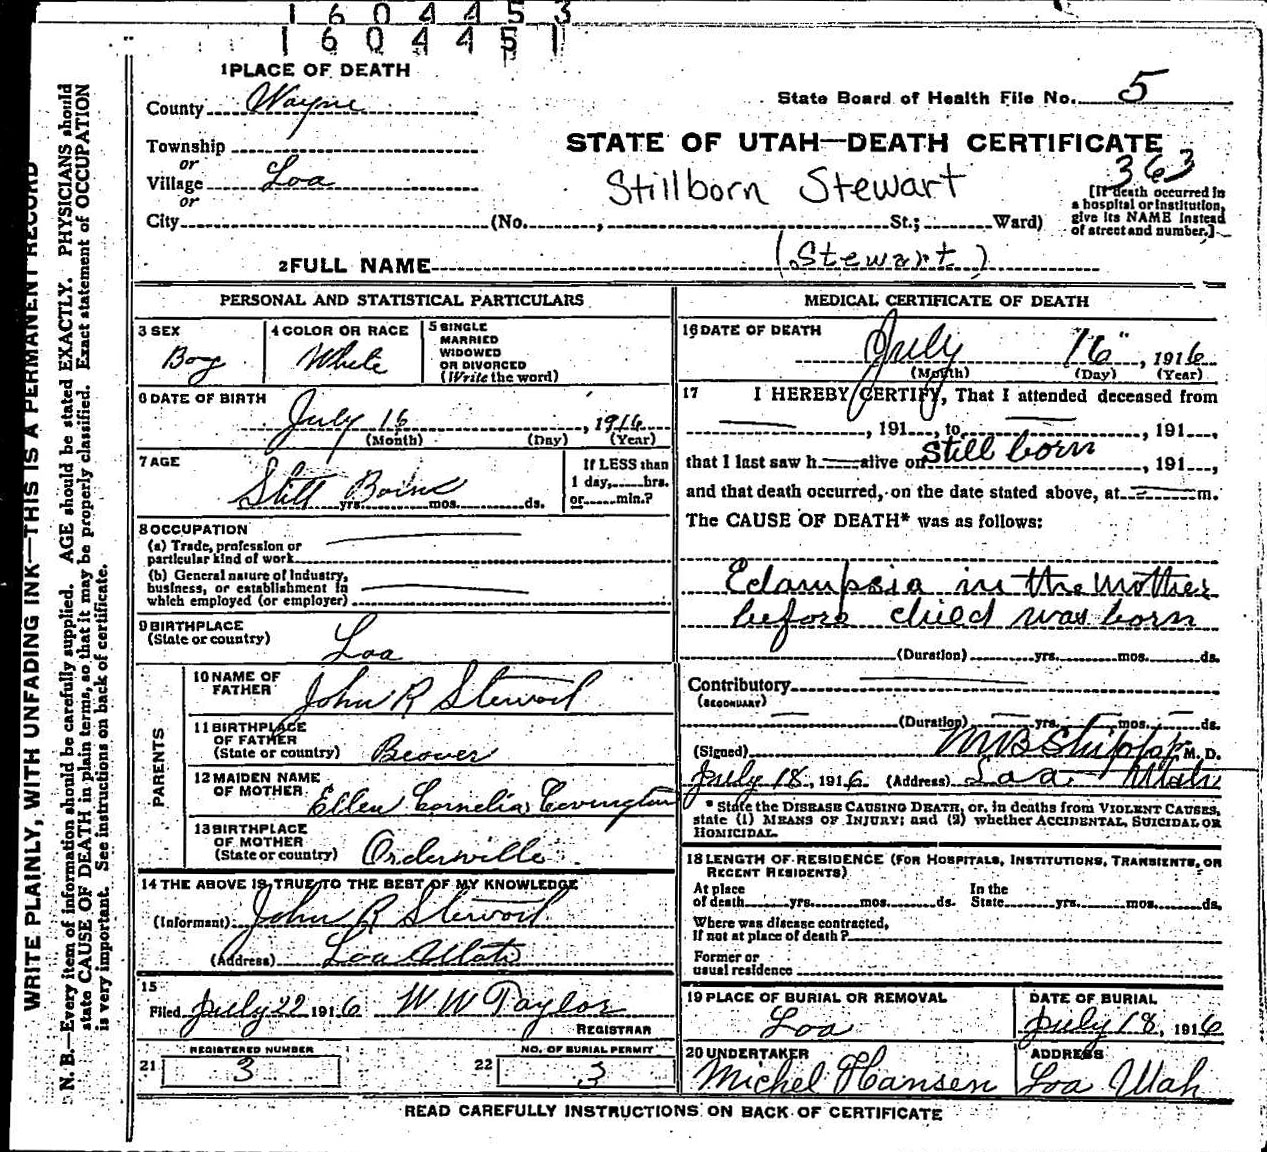 1604453
1604451
1 PLACE OF DEATH
County Wayne
State Board of Health File No. 5
Township
STATE OF UTAH—DEATH CERTIFICATE
or
363
Village Loa
Stillborn Stewart
or
[If death occurred in
a hospital or institution,
give its NAME instead
of street and number.]
City (No. , St.; Ward)
2 FULL NAME (Stewart)
PERSONAL AND STATISTICAL PARTICULARS
3 SEX
Boy
4 COLOR OR RACE
White
5 SINGLE
MARRIED
WIDOWED
OR DIVORCED
(Write the word)
6 DATE OF BIRTH
July 16, 1916
(Month) (Day) (Year)
7 AGE
Still Borne
yrs. mos. ds.
If LESS than
1 day, hrs.
or min.?
8 OCCUPATION
(a) Trade, profession or
particular kind of work
(b) General nature of industry,
business, or establishment in
which employed (or employer)
9 BIRTHPLACE
(State or country)
Loa
PARENTS
10 NAME OF
FATHER
John R Stewart
11 BIRTHPLACE
OF FATHER
(State or country)
Beaver
12 MAIDEN NAME
OF MOTHER
Ellen Cornelia Covington
13 BIRTHPLACE
OF MOTHER
(State or country)
Orderville
14 THE ABOVE IS TRUE TO THE BEST OF MY KNOWLEDGE
(Informant) John R Stewart
(Address) Loa Utah
15
Filed July 22 1916 W W Taylor
REGISTRAR
REGISTERED NUMBER
21 3
NO. OF BURIAL PERMIT
22 3
MEDICAL CERTIFICATE OF DEATH
16 DATE OF DEATH
July "16", 1916
(Month) (Day) (Year)
17 I HEREBY CERTIFY, That I attended deceased from
, 191 , to , 191 ,
that I last saw h alive on Still born , 191 ,
and that death occurred, on the date stated above, at m.
The CAUSE OF DEATH* was as follows:
Eclampsia in the Mother
before child was born
(Duration) yrs. mos. ds.
Contributory
(SECONDARY)
(Duration) yrs. mos. ds.
(Signed) M. D.
July 18, 1916 (Address) Loa Utah
* State the DISEASE CAUSING DEATH, or, in deaths from VIOLENT CAUSES,
state (1) MEANS OF INJURY; and (2) whether ACCIDENTAL, SUICIDAL OR
HOMICIDAL.
18 LENGTH OF RESIDENCE (FOR HOSPITALS, INSTITUTIONS, TRANSIENTS, OR
RECENT RESIDENTS)
At place
of death yrs. mos. ds.
In the
State yrs. mos. ds.
Where was disease contracted,
If not at place of death?
Former or
usual residence
19 PLACE OF BURIAL OR REMOVAL
Loa
DATE OF BURIAL
July 18, 1916
20 UNDERTAKER
Michel Hansen
ADDRESS
Loa Utah
READ CAREFULLY INSTRUCTIONS ON BACK OF CERTIFICATE
WRITE PLAINLY, WITH UNFADING INK—THIS IS A PERMANENT RECORD
N. B.—Every item of information should be carefully supplied. AGE should be stated EXACTLY. PHYSICIANS should
state CAUSE OF DEATH in plain terms, so that it may be properly classified. Exact statement of OCCUPATION
is very important. See instructions on back of certificate.